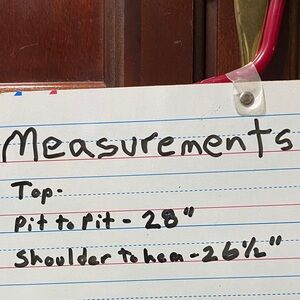 Measurements
Top-
Pit to Pit - 28"
Shoulder to hem - 26½"